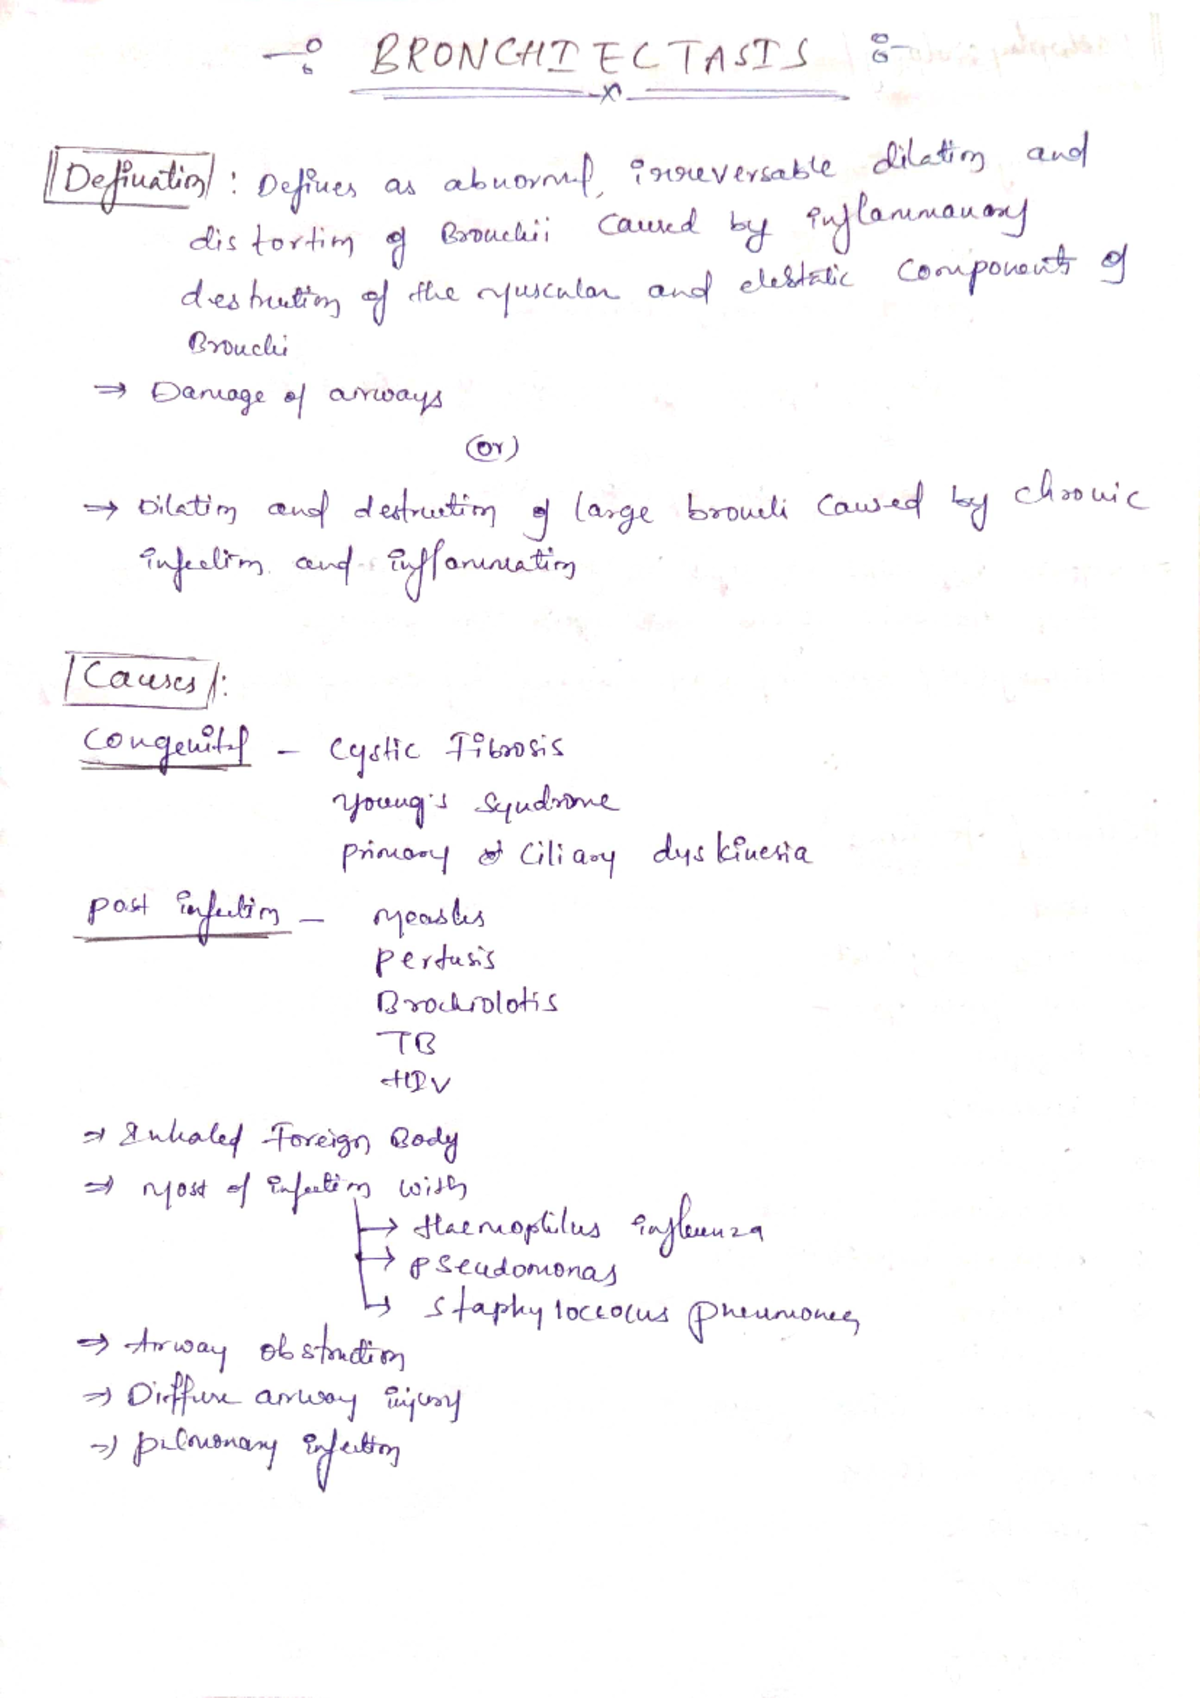 BRONCHIECTASIS :-
Defination : Defines as abnormal, irreversable dilation and
distortion of Bronchii caused by inflammanory
destrution of the muscular and elestatic components of
Bronchi
⇒ Damage of airways
(or)
⇒ Dilation and destruction of large bronchi caused by chronic
infection and inflammation
Causes :
Congenital - Cystic Fibrosis
Young's Syndrome
primary Ciliary dyskinesia
post infection - Measles
Pertusis
Brochiolotis
TB
HIV
⇒ Inhaled Foreign Body
⇒ Most of infection with
→ Haemophilus influenza
→ Pseudomonas
→ Staphyloccocus pneumonea
⇒ Airway obstruction
⇒ Diffuse airway injury
⇒ pulmonary infection